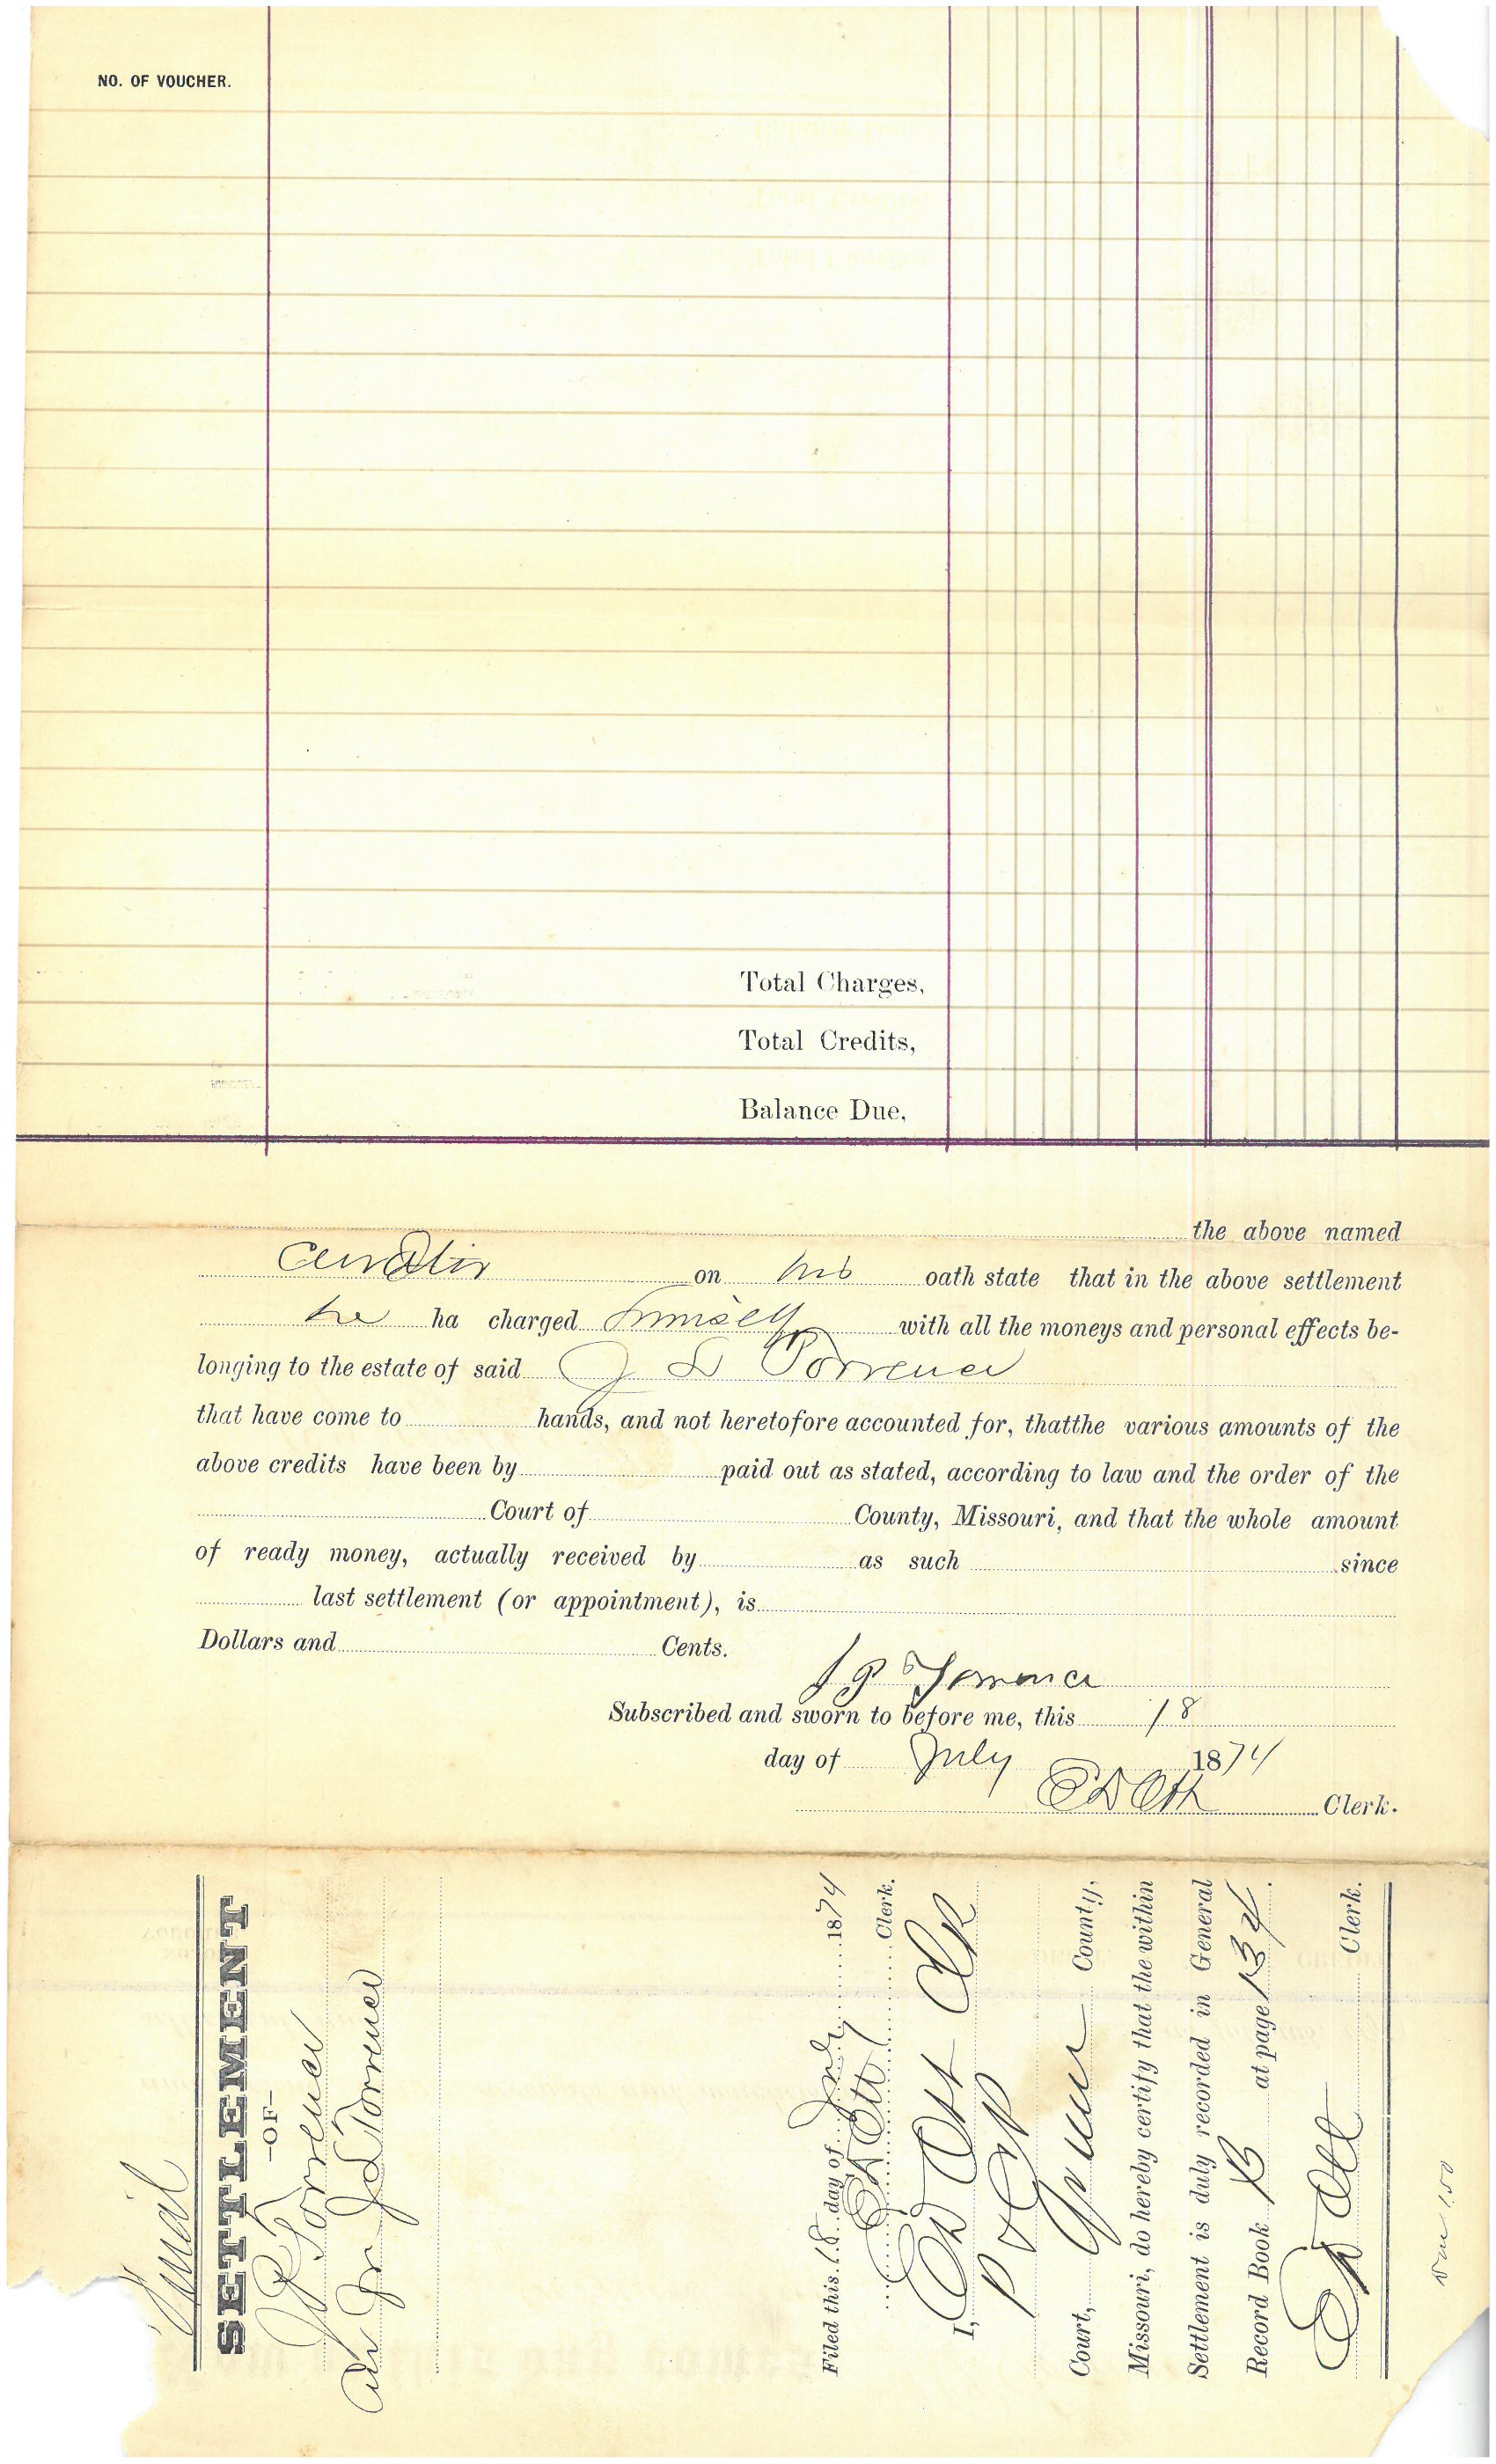 NO. OF VOUCHER.
Total Charges,
Total Credits,
Balance Due,
the above named
Curator on his oath state that in the above settlement
he ha charged himself with all the moneys and personal effects be-
longing to the estate of said J L Torrence
that have come to hands, and not heretofore accounted for, thatthe various amounts of the
above credits have been by paid out as stated, according to law and the order of the
Court of County, Missouri, and that the whole amount
of ready money, actually received by as such since
last settlement (or appointment), is
Dollars and Cents.
J P Torrence
Subscribed and sworn to before me, this 18
day of July 1874
E D Ott Clerk.
Final
SETTLEMENT
—OF—
J P Torrence
J L Torrence
Filed this 18 day of July 1874
E D Ott Clerk.
I, E D Ott Clk
Court, County,
Missouri, do hereby certify that the within
Settlement is duly recorded in General
Record Book B at page 134.
E D Ott Clerk.
1.50